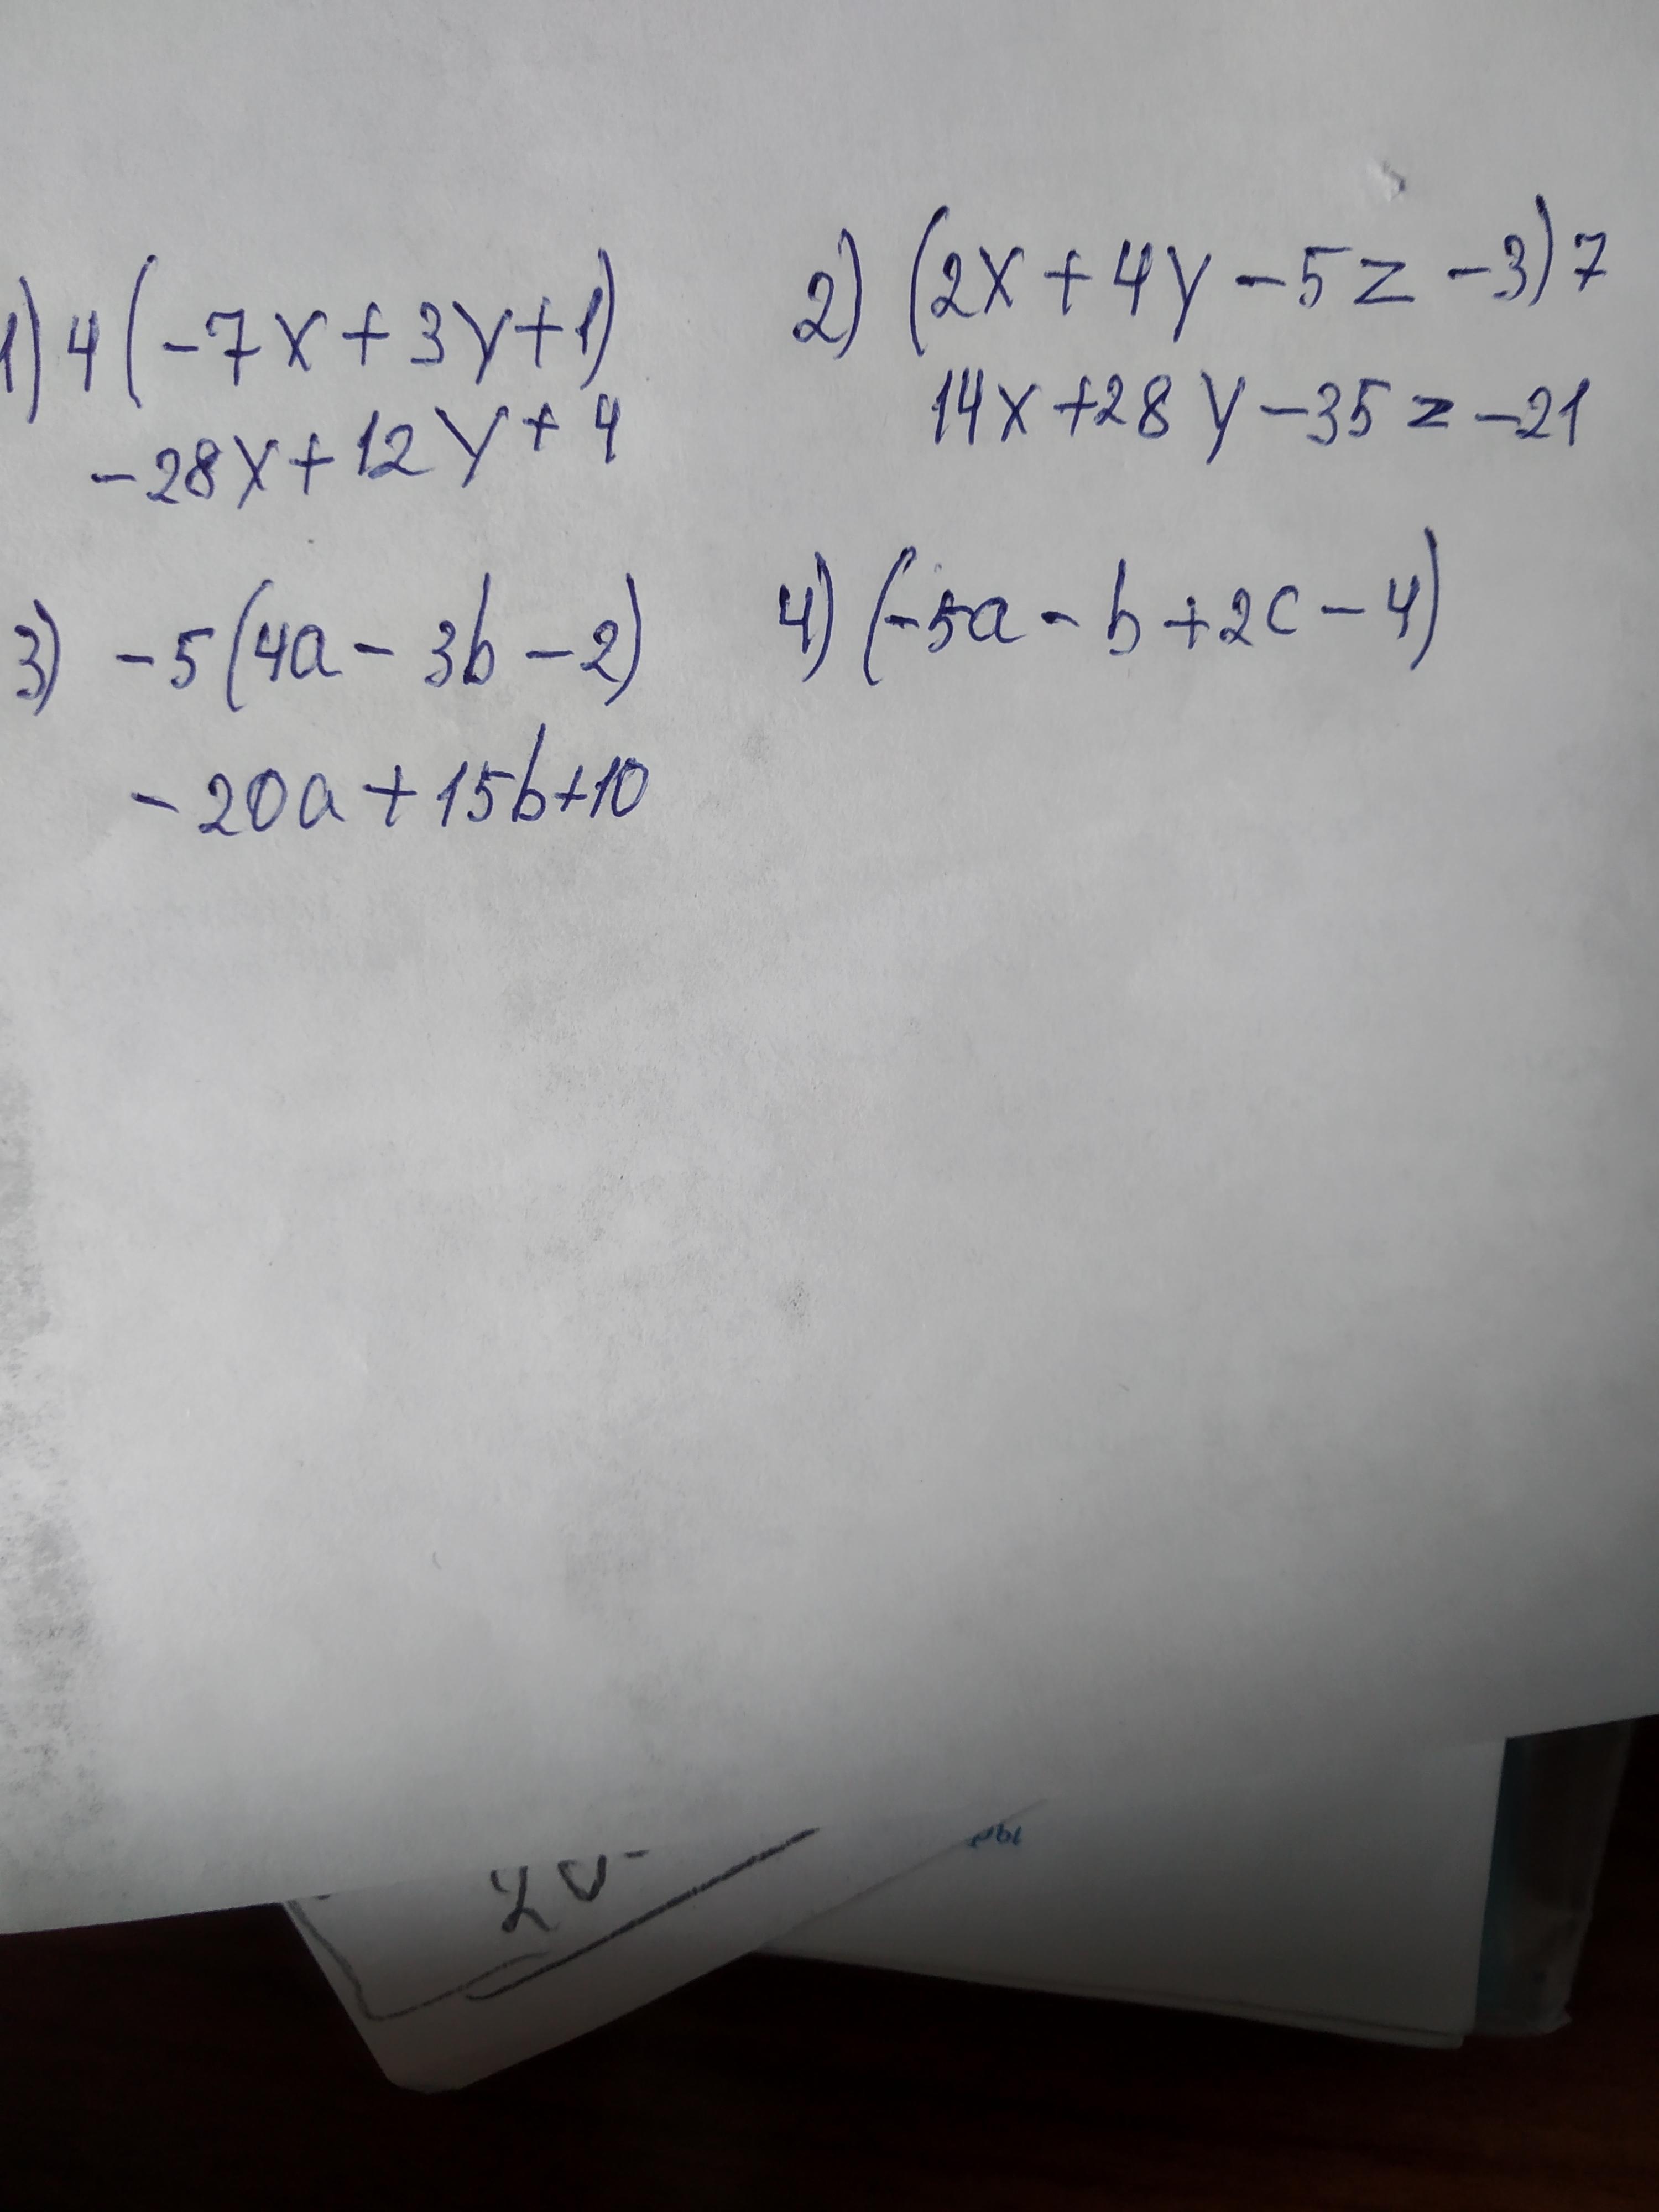 1) 4(-7x+3y+1)
-28x+12y+4
2) (2x+4y-5z-3)7
14x+28y-35z-21
3) -5(4a-3b-2)
-20a+15b+10
4) (-5a-b+2c-4)